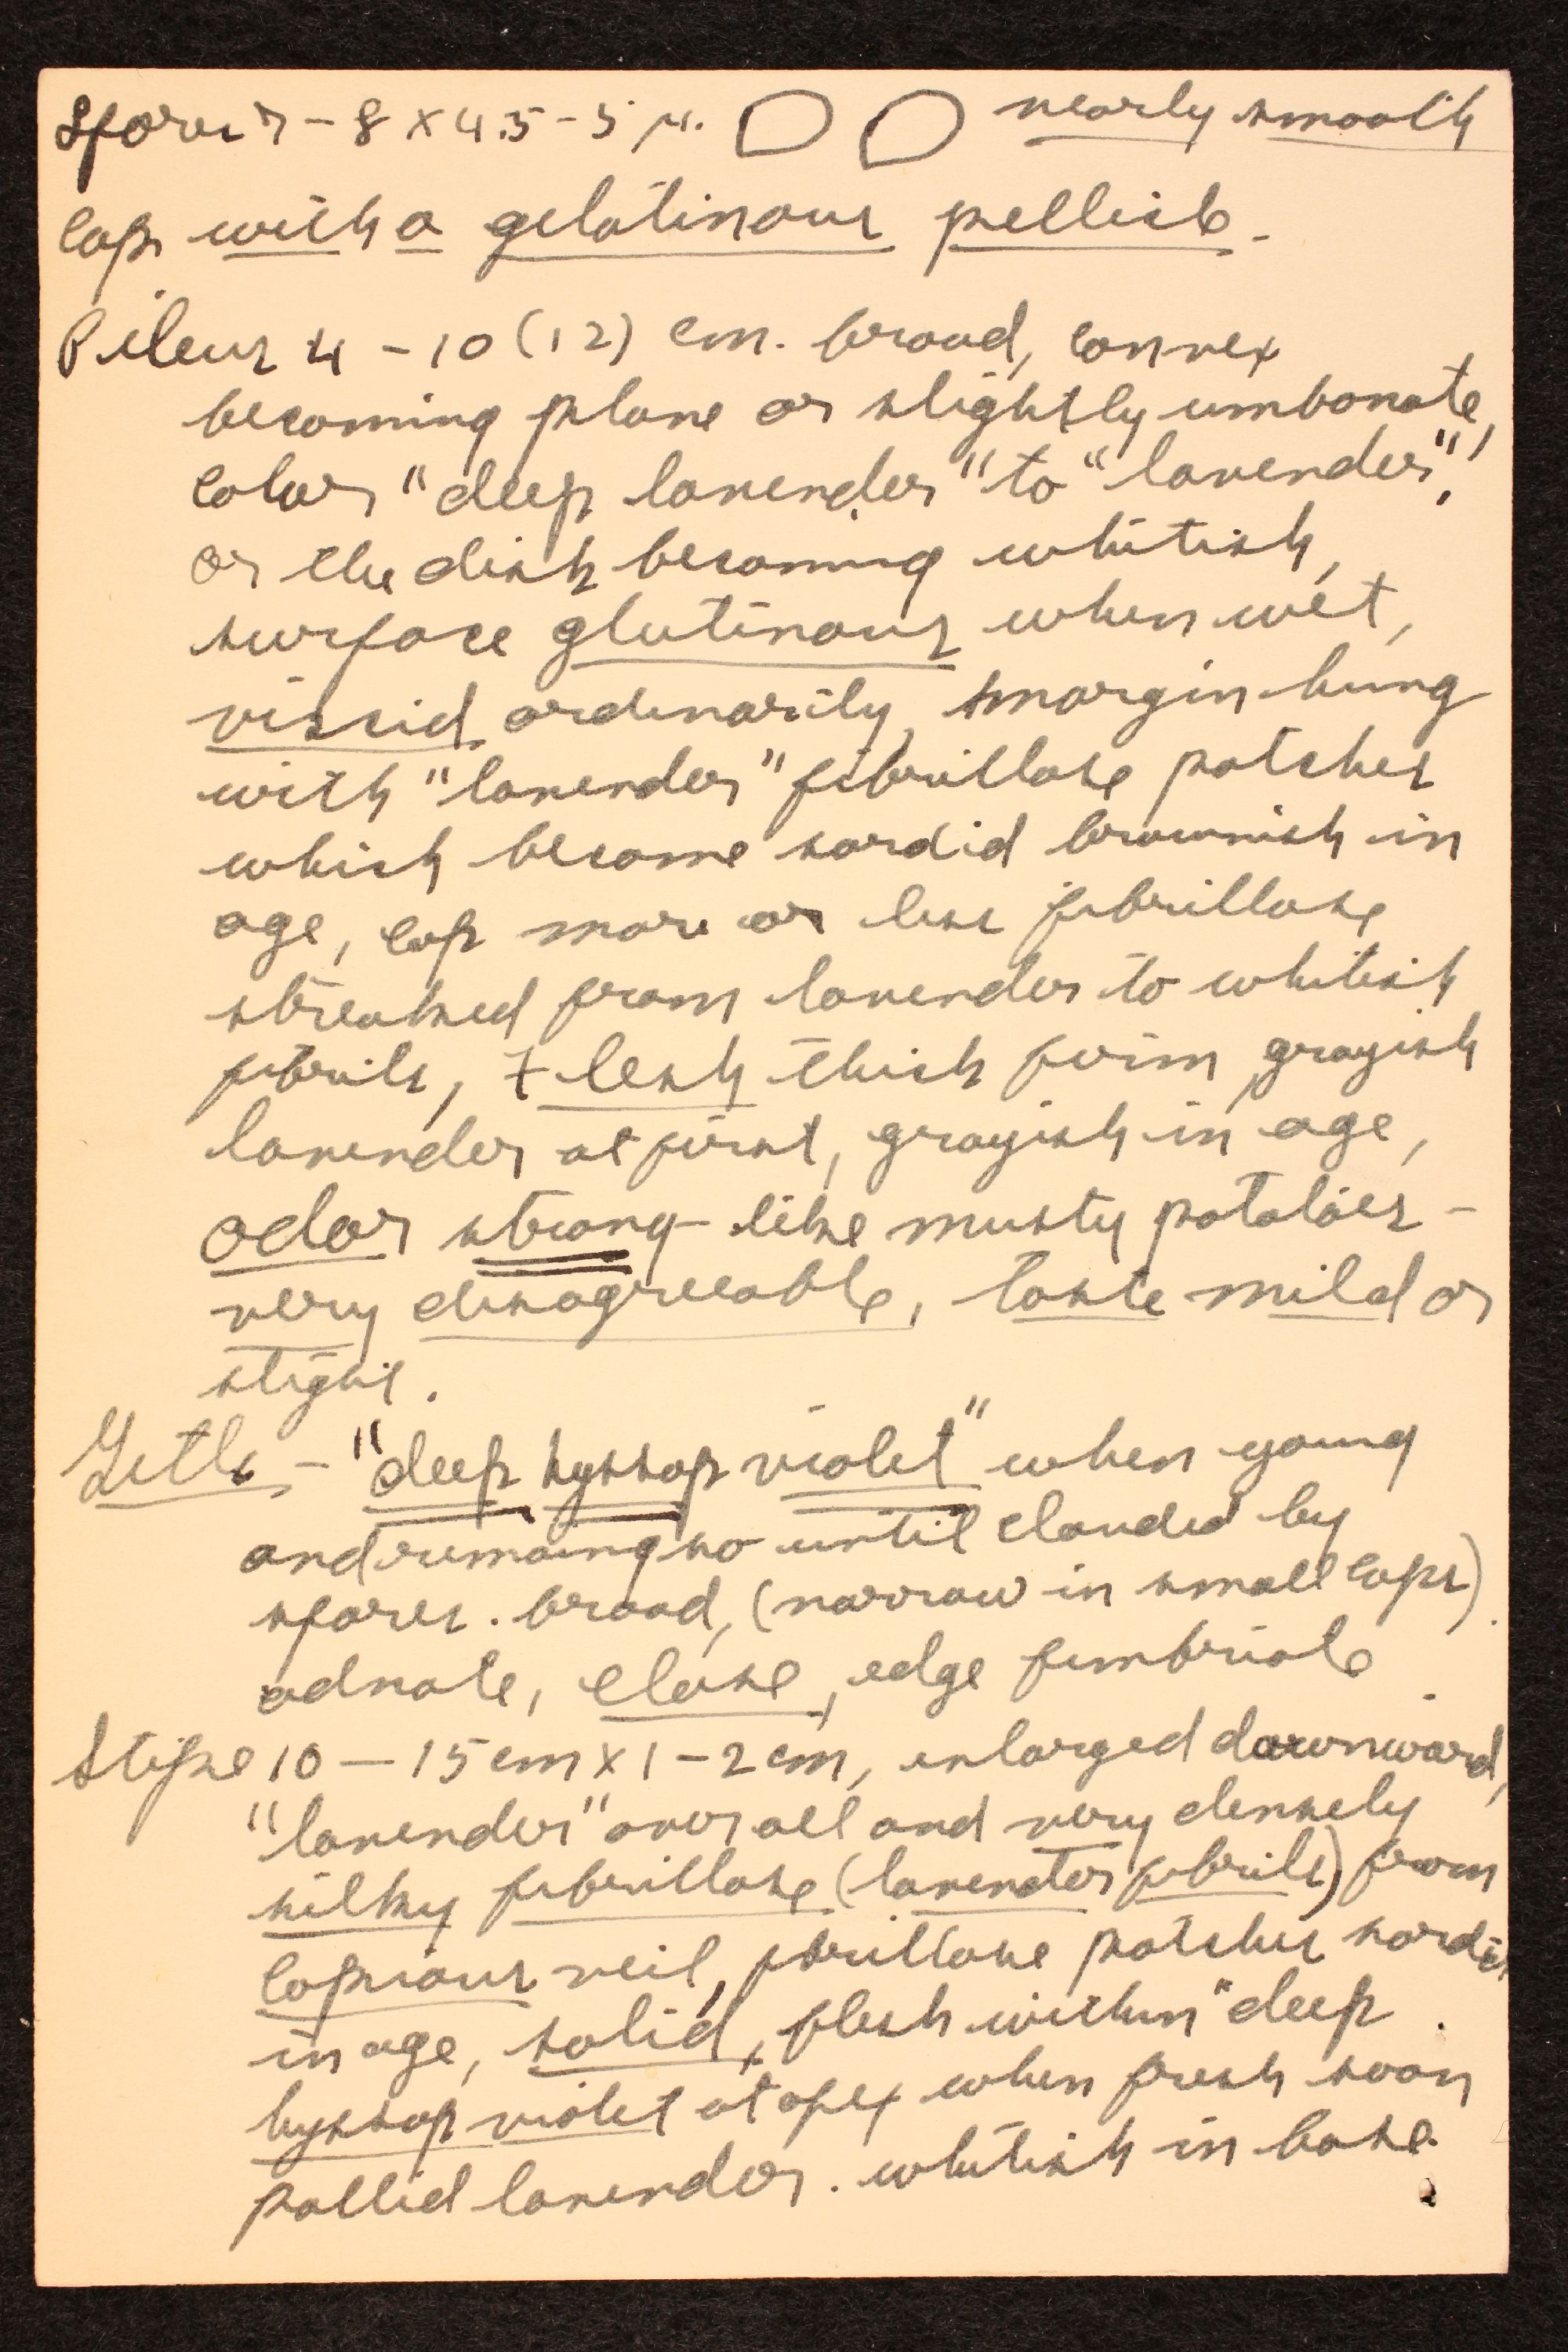 Spores 7-8 x 4.5-5 µ. nearly smooth
Cap with a gelatinous pellicle.
Pileus 4-10 (12) cm. broad, convex
becoming plane or slightly umbonate,
color "deep lavender" to "lavender",
or the disk becoming whitish,
surface glutinous when wet,
viscid ordinarily, margin hung
with "lavender" fibrillose patches
which become sordid brownish in
age, cap more or less fibrillose
streaked from lavender to whitish
fibrils, flesh thick firm, grayish
lavender at first, grayish in age,
odor strong - like musty potatoes -
very disagreeable, taste mild or
slight.
Gills - "deep hyssop violet" when young
and remaing so until clouded by
spores. broad, (narrow in small caps)
adnate, close, edge fimbriate
Stipe 10-15 cm x 1-2 cm, enlarged downward,
"lavender" over all and very densely
silky fibrillose (lavender fibrils) from
copious veil, fibrillose patches sordid
in age, solid, flesh within "deep
hyssop violet at apex when fresh soon
pallid lavender. whitish in base.